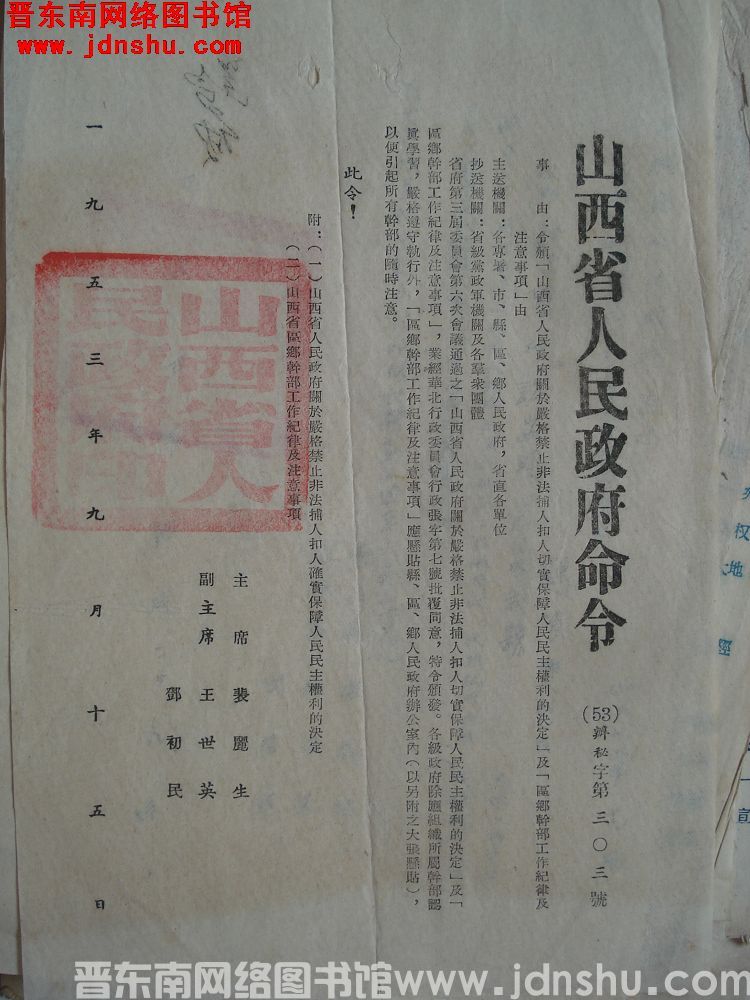 晋东南网络图书馆
www.jdnshu.com
山西省人民政府命令
(53)辦秘字第三〇三號
事由：令頒「山西省人民政府關於嚴格禁止非法捕人扣人切實保障人民民主權利的決定」及「區鄉幹部工作紀律及
注意事項」由
主送機關：各專署、市、縣、區、鄉人民政府，省直各單位
抄送機關：省級黨政軍機關及各羣衆團體
省府第三屆委員會第六次會議通過之「山西省人民政府關於嚴格禁止非法捕人扣人切實保障人民民主權利的決定」及「
區鄉幹部工作紀律及注意事項」，業經華北行政委員會行政張字第七號批覆同意，特令頒發。各級政府除應組織所屬幹部認
眞學習，嚴格遵守執行外，「區鄉幹部工作紀律及注意事項」應懸貼縣、區、鄉人民政府辦公室內（以另附之大張懸貼），
以便引起所有幹部的隨時注意。
此令！
附：（一）山西省人民政府關於嚴格禁止非法捕人扣人確實保障人民民主權利的決定
（二）山西省區鄉幹部工作紀律及注意事項
主席 裴麗生
副主席 王世英
鄧初民
一九五三年九月十五日
山西省人
民政府印
晋东南网络图书馆www.jdnshu.com